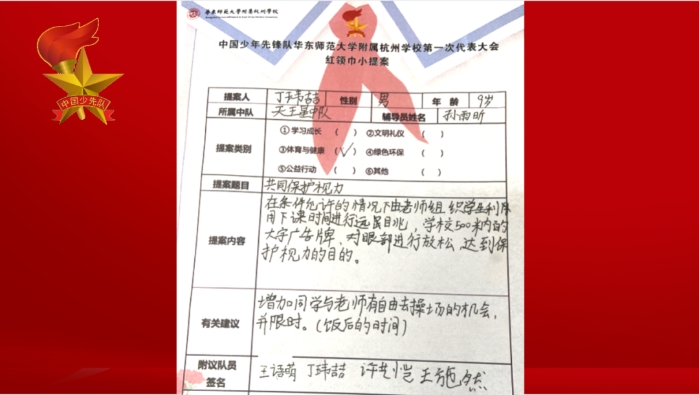 华东师范大学附属杭州学校
中国少先队
中国少年先锋队华东师范大学附属杭州学校第一次代表大会
红领巾小提案
提案人 丁玮喆 性别 男 年 龄 9岁
所属中队 天王星中队 辅导员姓名 孙雨昕
提案类别 ①学习成长 ( ) ②文明礼仪 ( )
③体育与健康 (√) ④绿色环保 ( )
⑤公益行动 ( ) ⑥其他 ( )
提案题目 共同保护视力
提案内容 在条件允许的情况下由老师组织学生利用
用下课时间进行远眺,学校500米内的
大字广告牌、对眼部进行放松,达到保
护视力的目的。
有关建议 增加同学与老师有自由去操场的机会,
并限时。(饭后的时间)
附议队员
签名 王语萌 丁玮喆